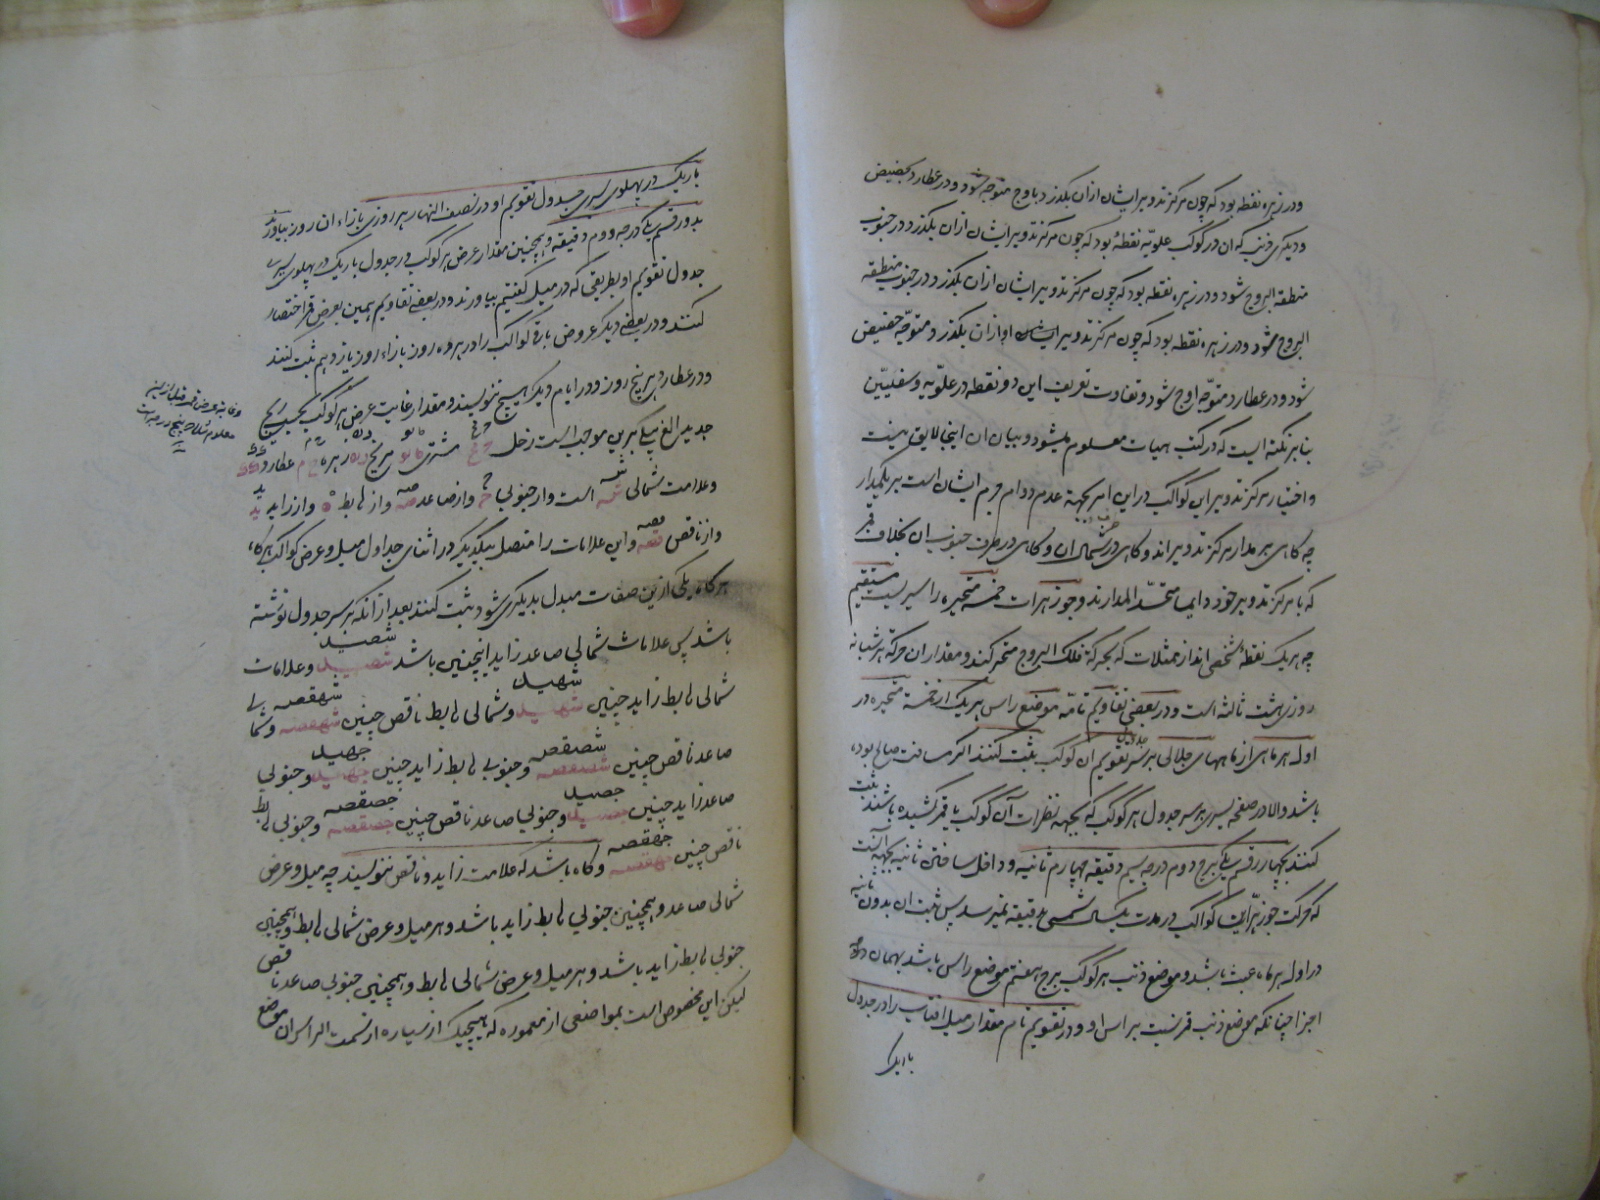 ودر زهره نقطه بود که چون مرکز تدویر ایشان ازان بگذرد باوج متوجه شود ودر عطارد بحضیض
ودیگری ذنب که ان در کواکب علویه نقطهٔ بود که چون مرکز تدویر ایشان ازان بگذرد در جنوب
منطقه البروج شود ودر زهره نقطه بود که چون مرکز تدویر ایشان ازان بگذرد در جنوب منطقه
البروج شود ودر زهره نقطه بود که چون مرکز تدویر او ازان بگذرد متوجّه حضیض
شود ودر عطارد متوجّه اوج شود وتفاوت تعریف این دو نقطه در علوّیه وسفلیّین
بنابر نکته ایست که در کتب هیات معلوم میشود وبیان ان اینجا لایق نیست
واختیار مرکز تدویر این کواکب در این امر بجهة عدم دوام جرم ایشان است بر یکمدار
چه کاهی بر مدار مرکز تدویر اند وکاهی در شمال ان وکاهی در طرف جنوب ان بخلاف قمر
که با مرکز تدویر خود دایما متحدّ المدارند وجوزهرات خمسهٔ متحیره را سیریست مستقیم
چه هریک نقطهٔ شخصی اند از ممثلات که بحرکة فلک البروج متحرکند ومقدار ان حرکة هر شبانه
روزی هشت ثالثه است ودر بعضی تقاویم تامّه موضع راس هریک از خمسهٔ متحیره در
اول هر ماهی از ماههای جلالی بر سر جدول تقویم ان کوکب ثبت کنند اکر مسافت صالح بوده
باشد والا در صفحه یسری بر سر جدول هر کوکب که بجهة نظرات آن کوکب با قمر کشیده باشند ثبت
کنند بچهار رقم یکی برج دوم درجه سیم دقیقه چهارم ثانیه وداخل ساختن ثانیه بجهة آنست
که حرکت جوزهرّات کواکب در مدت یکسال شمسی بدقیقه نمیرسد پس ثبت ان بدون ثانیه
در اول هر ماه عبث باشد وموضع ذنب هر کوکب برج هفتم موضع راس باشد بهمان درجه
اجزا چنانکه موضع ذنب قمر نسبت براس او ودر تقویم تام مقدار میل افتاب را در جدول
باریک
باریک در پهلوی یسری جدول تقویم او در نصف النهار هر روزی بازاء ان روز بیاورند
بدو رقم یکی درجه ودوم دقیقه وهمچنین مقدار عرض هر کوکب در جدول باریک در پهلوی یسری
جدول تقویم او بطریقی که در میل کفتیم بیاورند ودر بعضی تقاویم همین بعرض قمر اختصار
کنند ودر بعضی دیکر عروض باقی کواکب را در هر ده روز بازاء روز یازدهم ثبت کنند
ودر عطارد هر پنج روز ودر ایام دیکر هیچ ننویسند ومقدار غایت عرض هر کوکب بحسب زیج
وغایة عرض قمر قبل ازین
معلوم شد که پنج درجه است
جدید الغ بیکی برین موجب است زحل مشتری مریخ زهره عطارد
وعلامت شمالی ش است واز جنوبی ج واز صاعد صه واز هابط ه واز زاید ید
واز ناقص قصه واین علامات را متصل بیکدیگر در اثنای جداول میل وعرض کواکب
هرکاه یکی ازین صفات مبدل بدیکری شود ثبت کنند بعد از انکه بر سر جدول نوشته
باشد پس علامات شمالی صاعد زاید اینچنین باشد شصید وعلامات
شمالی هابط زاید چنین شهید وشمالی هابط ناقص چنین شهقصه وشمالی
صاعد ناقص چنین شصقصه وجنوبی هابط زاید چنین جهید وجنوبی
صاعد زاید چنین جصید وجنوبی صاعد ناقص چنین جصقصه وجنوبی هابط
ناقص چنین جهقصه وکاه باشد که علامت زاید وناقص ننویسند چه میل وعرض
شمالی صاعد وهمچنین جنوبی هابط زاید باشد وهر میل وعرض شمالی هابط وهمچنین
جنوبی هابط زاید باشد وهر میل وعرض شمالی هابط وهمچنین جنوبی صاعد ناقص
لیکن این مخصوص است بمواضعی از معموره که هیچیک از سیاره از سمت الراس ان موضع